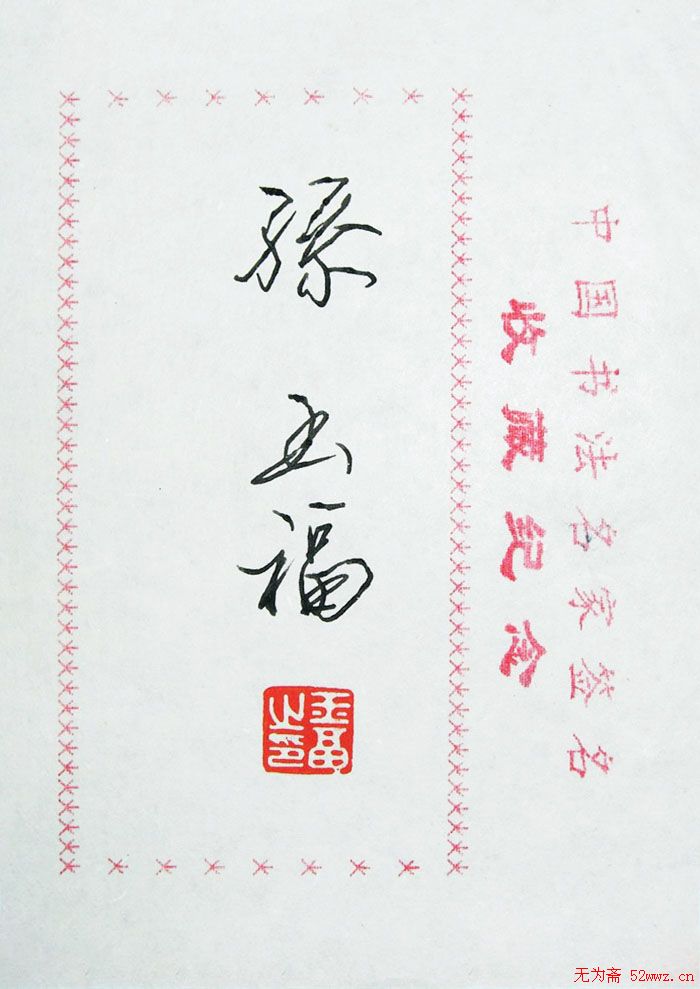 中国书法名家签名
收藏纪念
玉福
玉福之印
无为斋 52wwz.cn